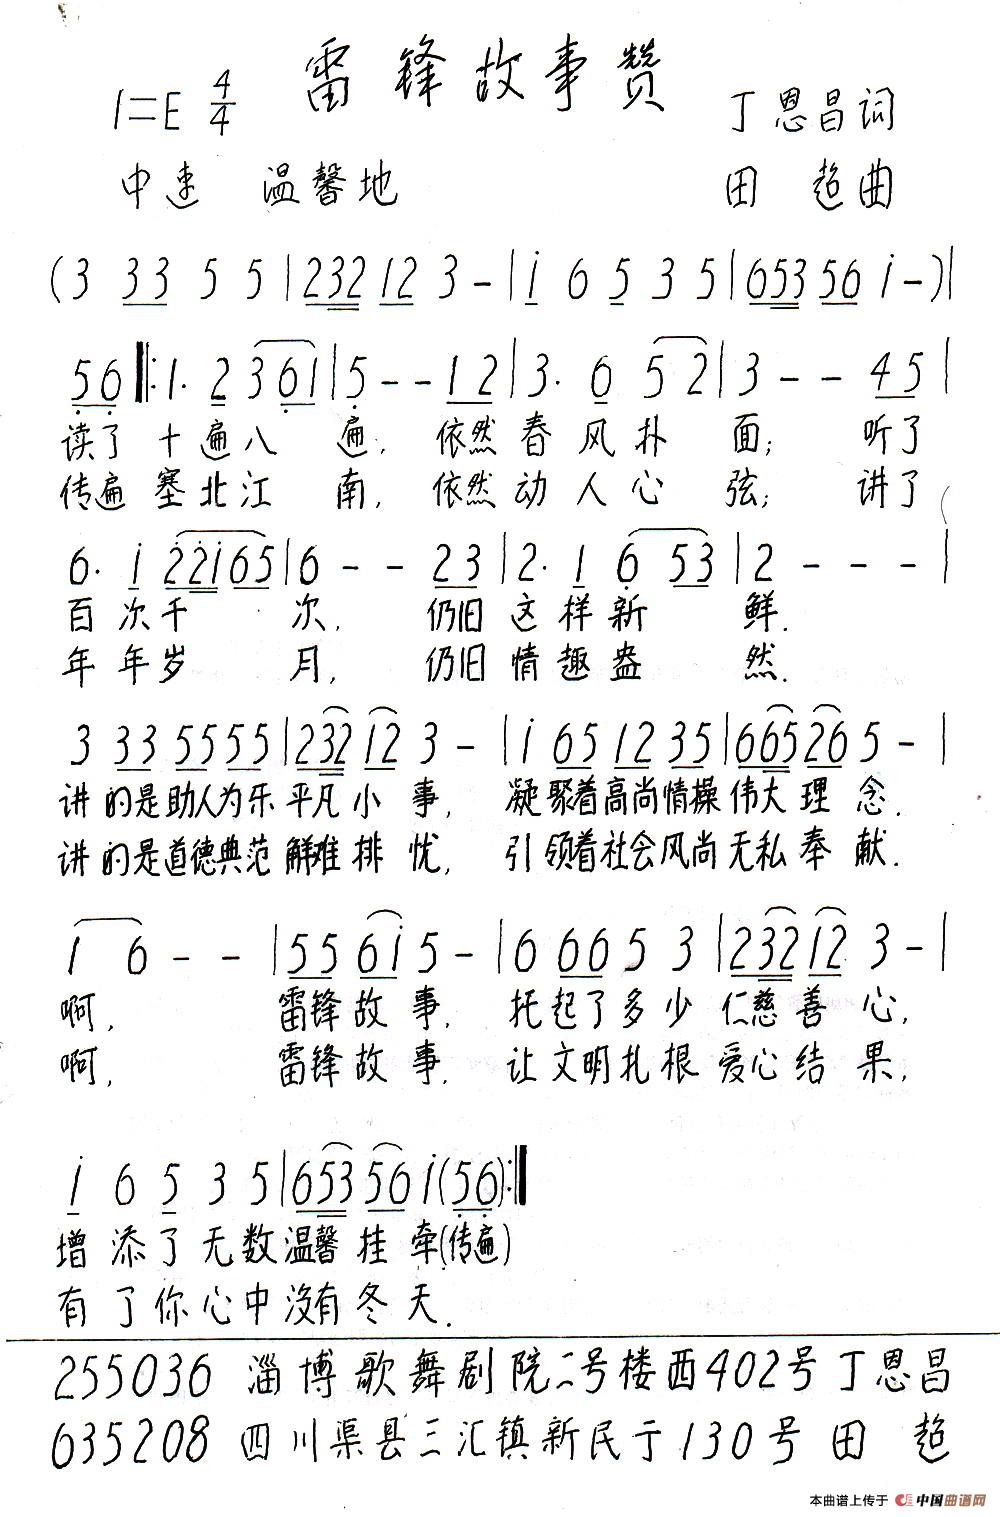 雷锋故事赞
1=E 4/4 丁恩昌词
中速 温馨地 田 超曲
(3 33 5 5|232 12 3 -|i 6 5 3 5|653 56 i -)|
56 ‖:1· 2 3 61|5 - - 12|3· 6 5 2|3 - - 45|
读了 十遍八 遍, 依然春风扑 面; 听了
传遍 塞北江 南, 依然动人心 弦; 讲了
6· i 22i65|6 - - 23|2· 1 6 53|2 - - -|
百次千 次, 仍旧这样新 鲜.
年年岁 月, 仍旧情趣盎 然.
3 33 55 55|232 12 3 -|i 65 12 35|665 26 5 -|
讲的是助人为乐平凡小 事, 凝聚着高尚情操伟大理 念.
讲的是道德典范解难排 忧, 引领着社会风尚无私奉 献.
1 6 - -|55 6i 5 -|6 66 5 3|232 12 3 -|
啊, 雷锋故 事, 托起了多少仁慈善 心,
啊, 雷锋故 事, 让文明扎根爱心结 果,
i 6 5 3 5|653 56 i (56):‖
增添了无数温馨挂 牵.(传遍)
有了你心中没有冬 天.
255036 淄博歌舞剧院二号楼西402号 丁恩昌
635208 四川渠县三汇镇新民于130号 田 超
本曲谱上传于 中国曲谱网